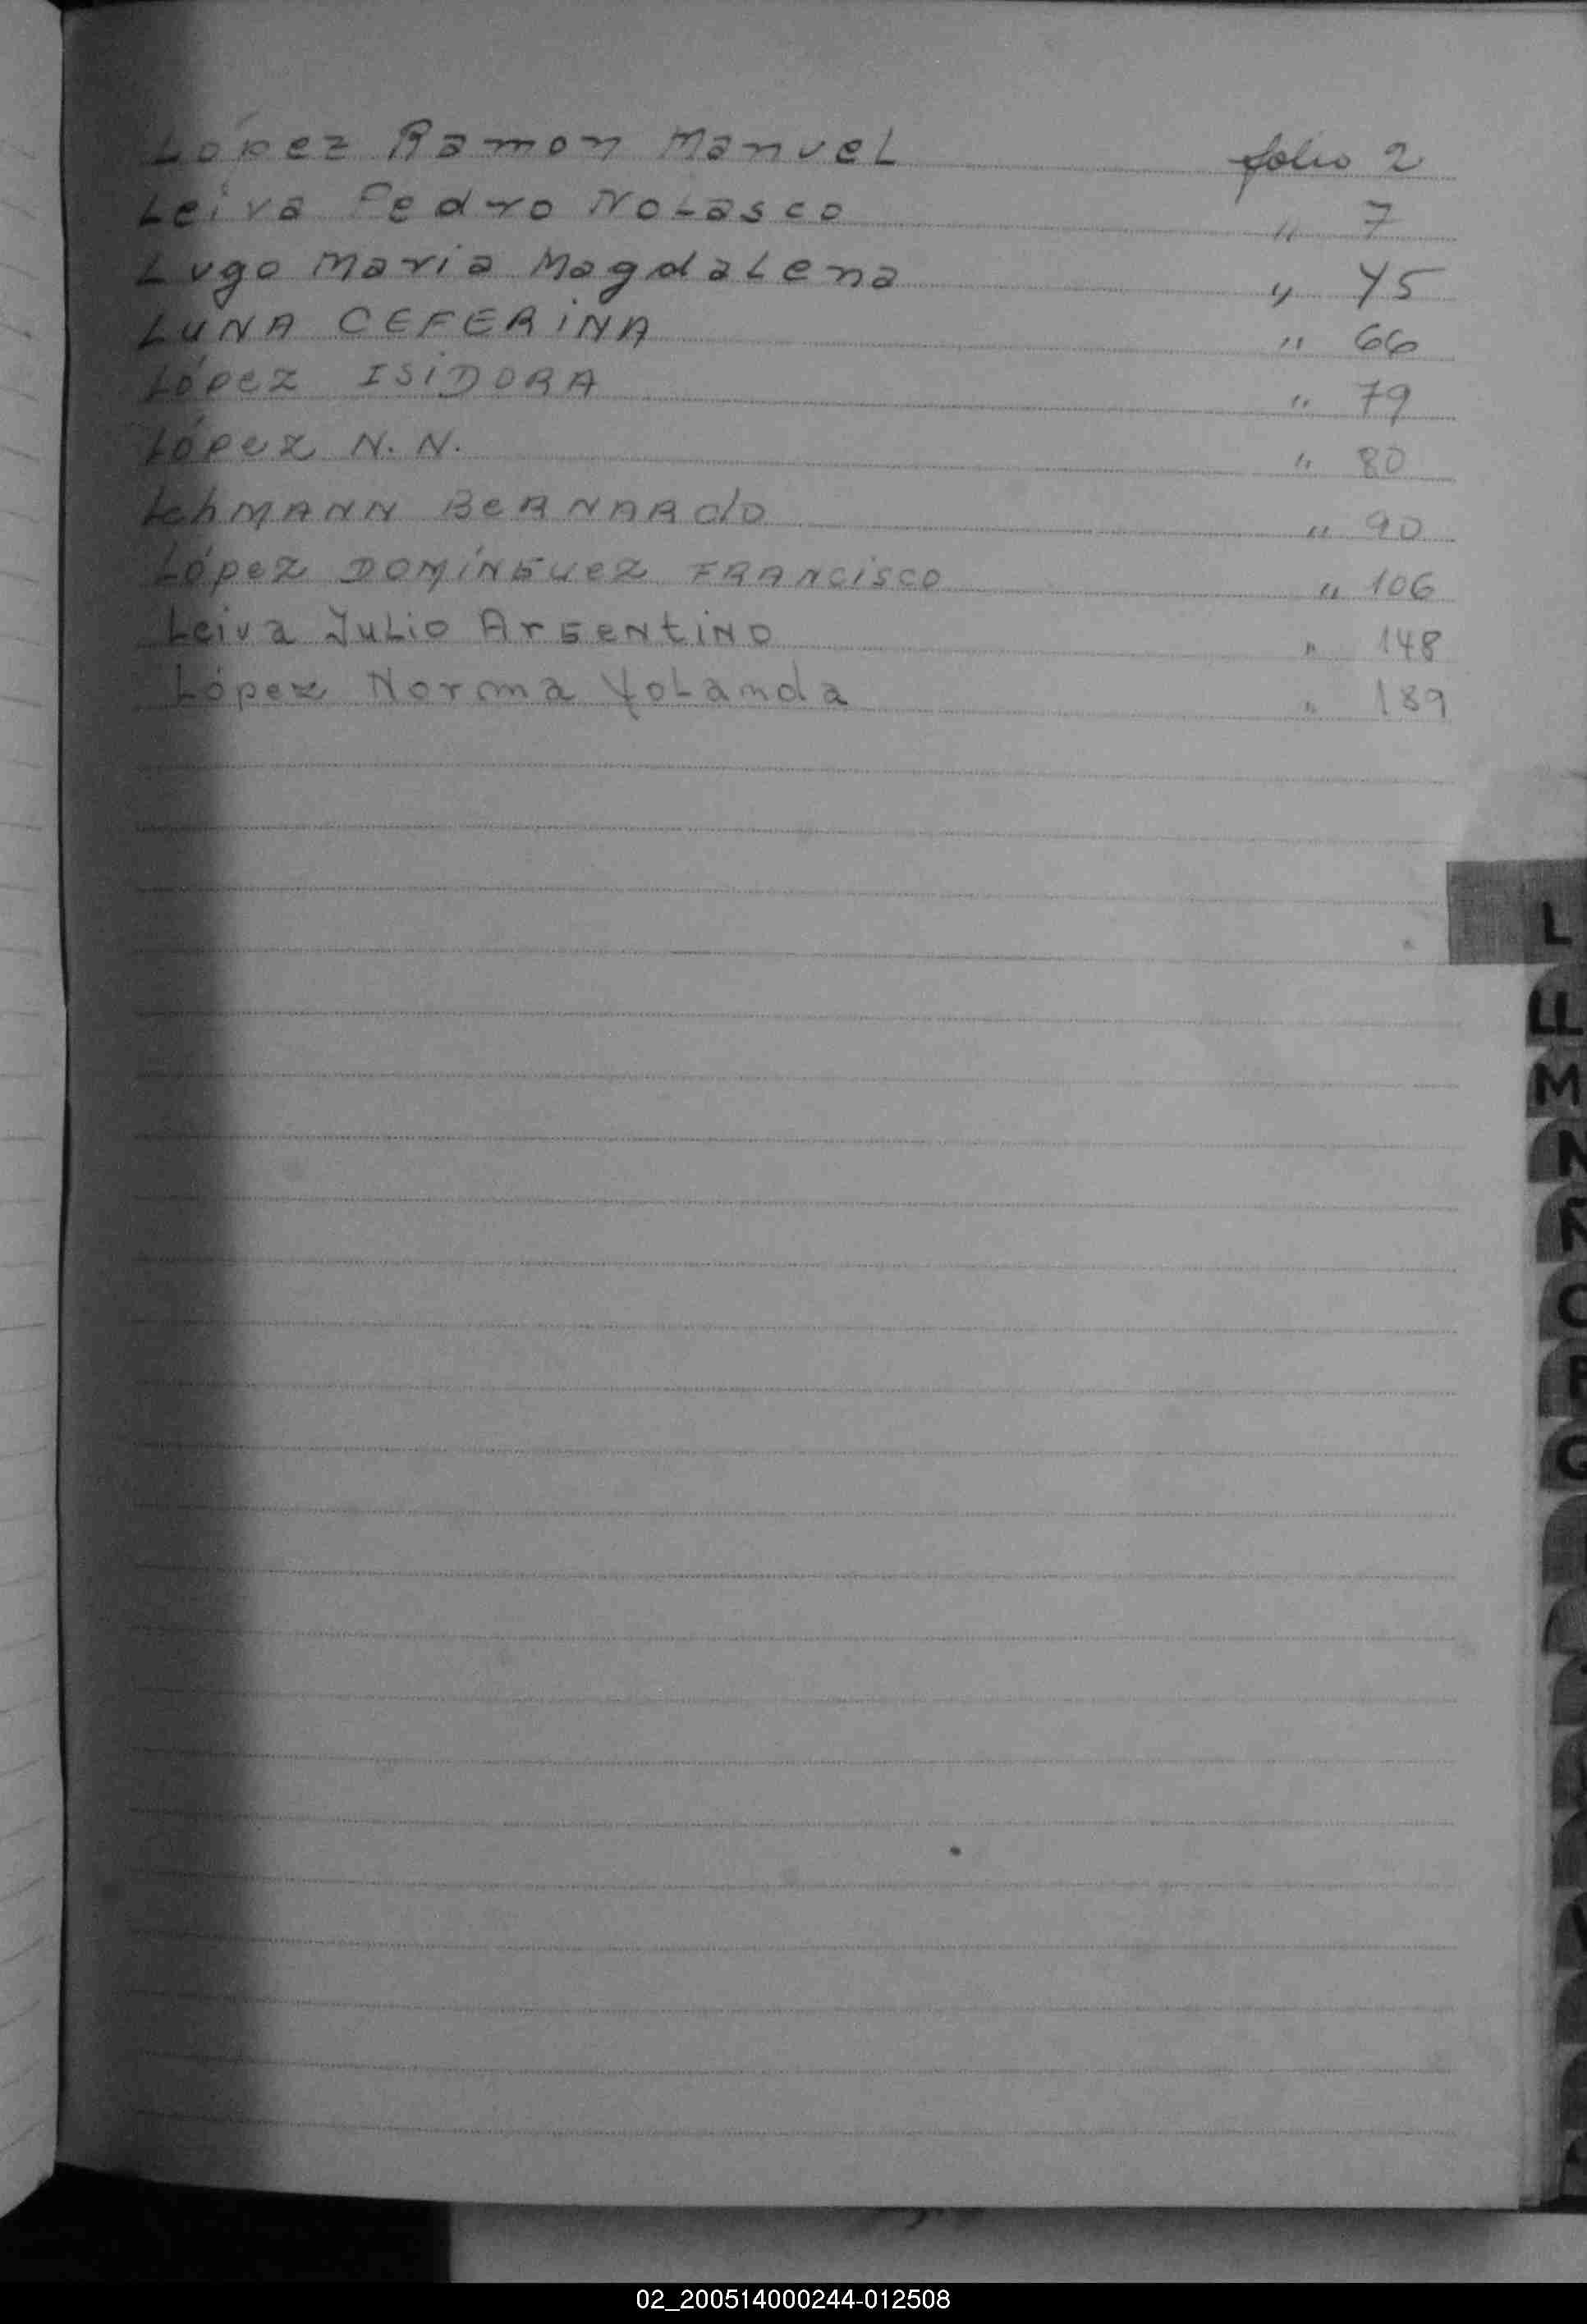 López Ramon Manuel folio 2
Leiva Pedro Nolasco " 7
Lugo Maria Magdalena " 45
LUNA CEFERINA " 66
López ISIDORA " 79
López N. N. " 80
LehMANN BERNARdO " 90
López DOMÍNGUEZ FRANCISCO " 106
Leiva Julio Argentino " 148
López Norma Yolanda " 189
L
LL
M
N
Ñ
O
P
Q
02_200514000244-012508